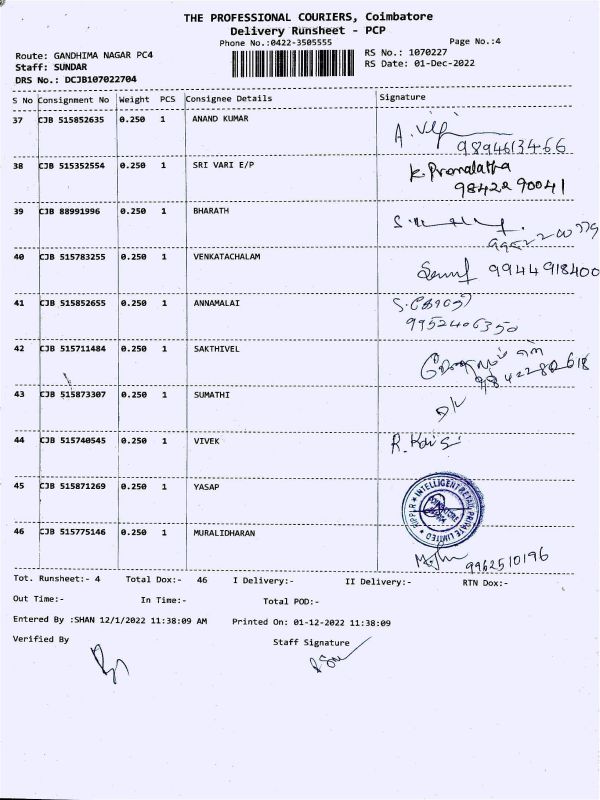 THE PROFESSIONAL COURIERS, Coimbatore
Delivery Runsheet - PCP
Phone No.:0422-3505555 Page No.:4
Route: GANDHIMA NAGAR PC4 RS No.: 1070227
Staff: SUNDAR RS Date: 01-Dec-2022
DRS No.: DCJB107022704
S No Consignment No Weight PCS Consignee Details Signature
37 CJB 515852635 0.250 1 ANAND KUMAR
9894613466
38 CJB 515352554 0.250 1 SRI VARI E/P K. Premalatha
9842290041
39 CJB 88991996 0.250 1 BHARATH
40 CJB 515783255 0.250 1 VENKATACHALAM 9944918400
41 CJB 515852655 0.250 1 ANNAMALAI
9952406350
42 CJB 515711484 0.250 1 SAKTHIVEL
43 CJB 515873307 0.250 1 SUMATHI
44 CJB 515740545 0.250 1 VIVEK
45 CJB 515871269 0.250 1 YASAP
INTELLIGENT RETAIL PRIVATE LIMITED
46 CJB 515775146 0.250 1 MURALIDHARAN
9962510196
Tot. Runsheet:- 4 Total Dox:- 46 I Delivery:- II Delivery:- RTN Dox:-
Out Time:- In Time:- Total POD:-
Entered By :SHAN 12/1/2022 11:38:09 AM Printed On: 01-12-2022 11:38:09
Verified By Staff Signature